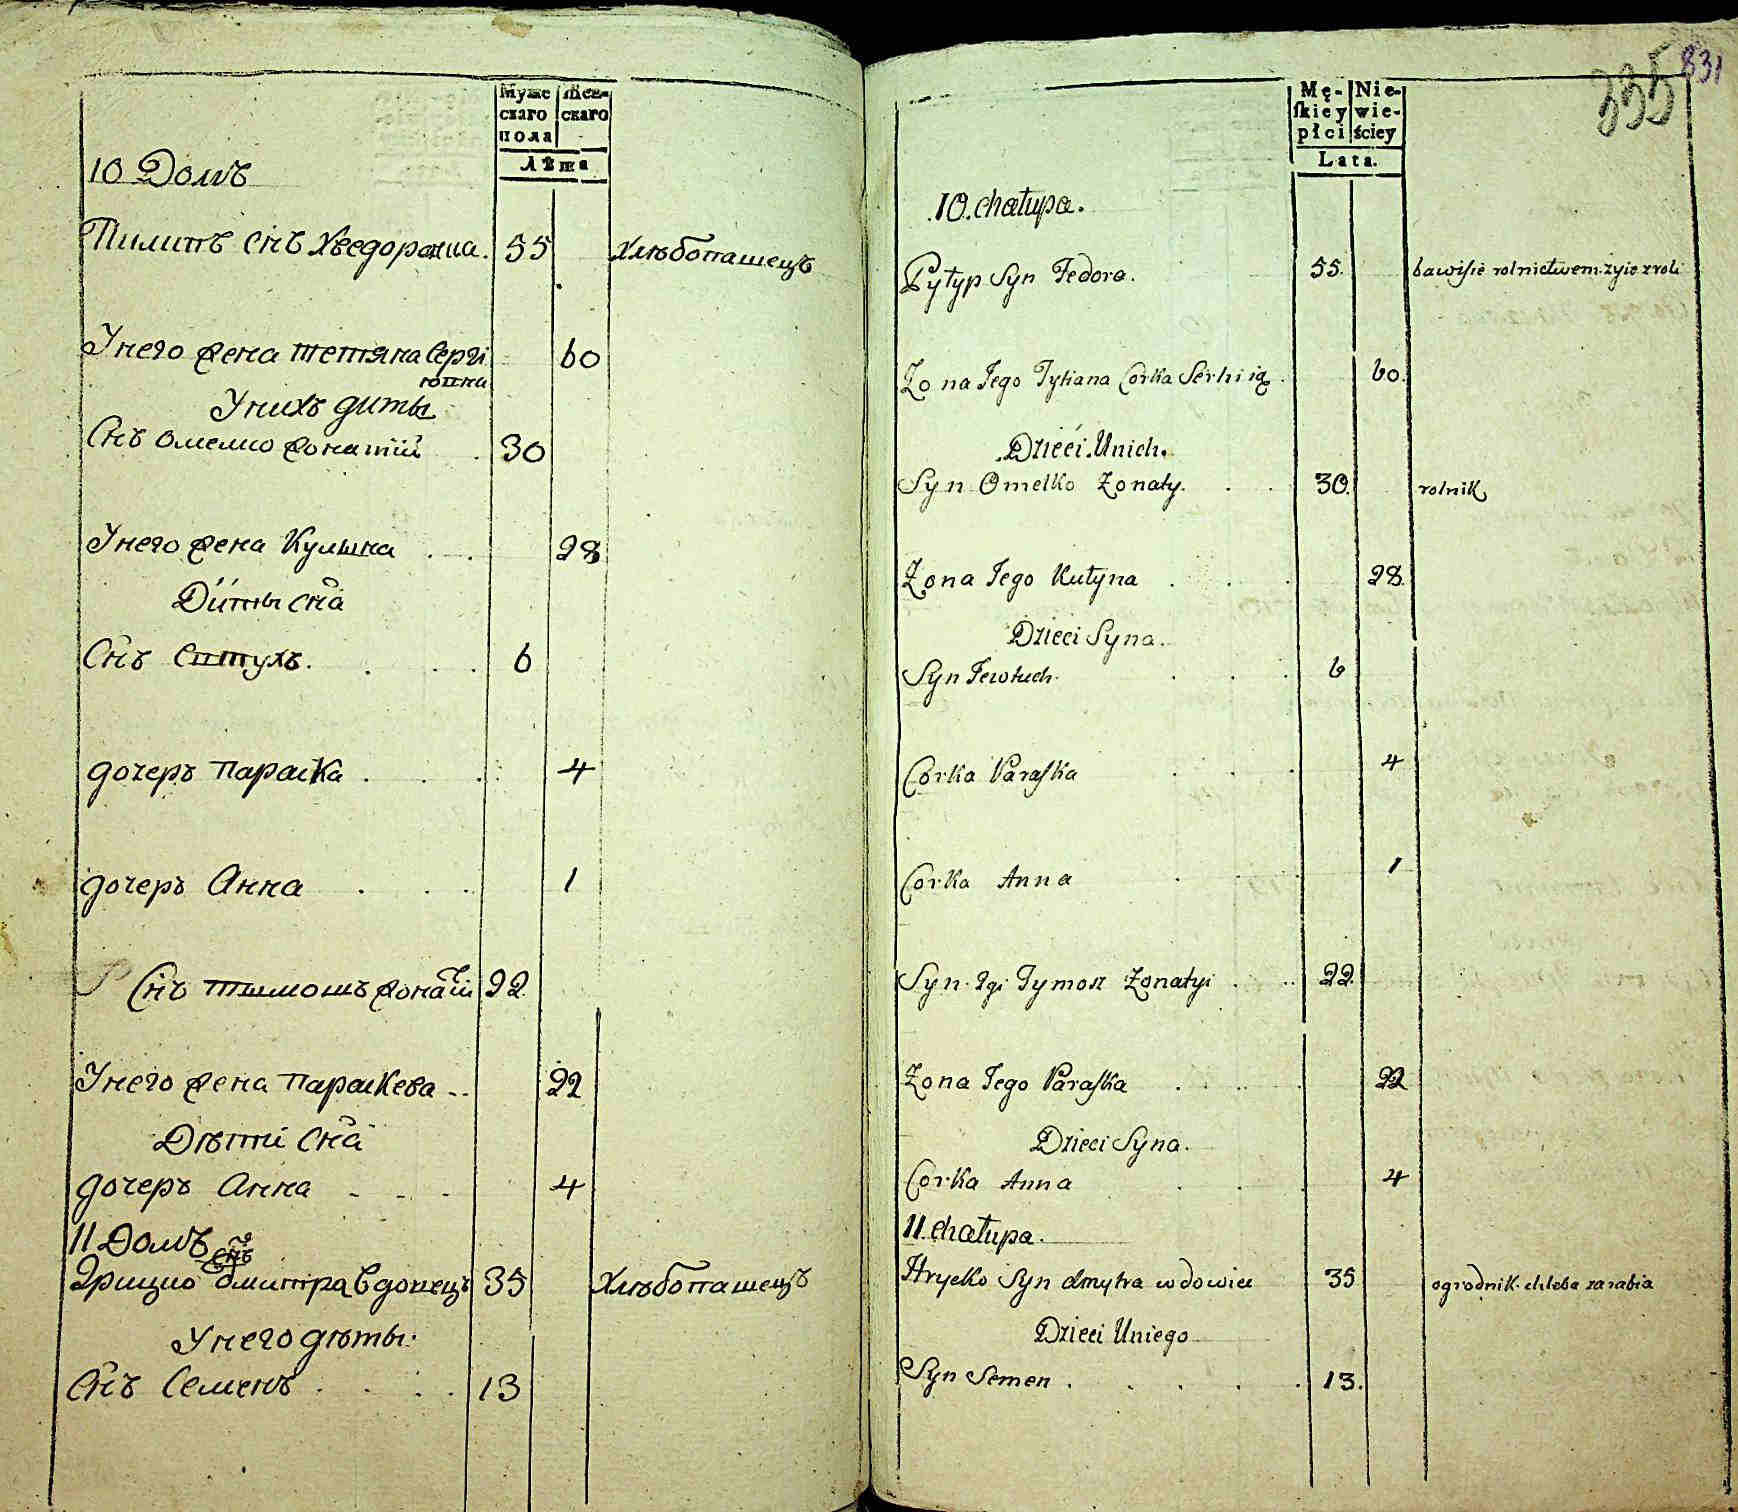 Муже Жен-
скаго скаго
пола
Лѣта
10 Домъ
Пилипъ снъ Хведоровича. 55 Хлѣбопашецъ
Унего жена тетяна Сергі 60
ювна
Унихъ диты
Снъ Омелко жонатій 30
Унего жена Кулына 28
Диты сна
Снъ Евтухъ. 6
дочеръ параска 4
дочеръ Анна 1
Снъ тымошъ жонатій 22
Унего жена параскева 22
Дѣти сна
дочеръ Анна 4
11 Домъ
снъ
Грицко дмитра вдовецъ 35 Хлѣбопашецъ
Унего дѣты.
Снъ Семенъ 13
335 831
Mę- Nie-
ſkiey wie-
płci ściey
Lata.
10. chałupa.
Pylyp Syn Fedora. 55. bawiſie rolnictwem zyie zroli
Zona Jego Tytiana Corka Serhiią. 60.
Dzieci Unich.
Syn Omelko Zonaty. 30. rolnik
Zona Jego Kułyna 28.
Dzieci Syna.
Syn Jewtuch. 6
Corka Paraſka 4
Corka Anna 1
Syn 2gi Tymosz Zonatyi 22.
Zona Jego Paraſka 22
Dzieci Syna.
Corka Anna 4
11 chałupa.
Hrycko Syn dmytra wdowiec 35 ogrodnik chleba zarabia
Dzieci Uniego
Syn Semen. 13.